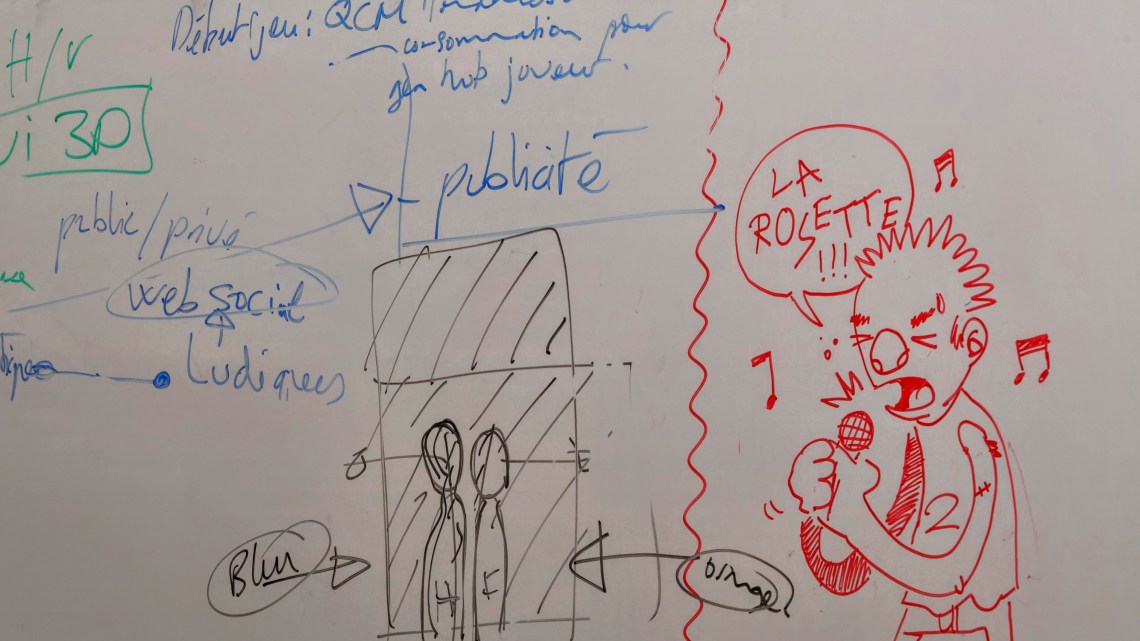 H/V
3D
Début jeu : QCM
consommation pour
joueur.
publicité
public/privé
web social
Ludiques
LA
ROSETTE
!!!
2
Blue
H F